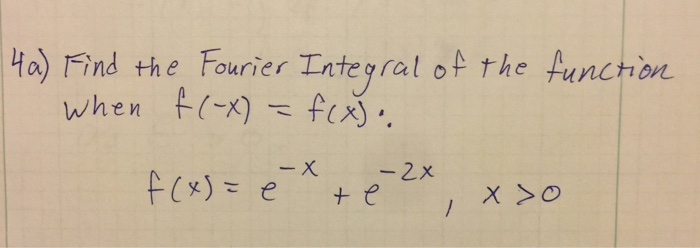 4a) Find the Fourier Integral of the function
when f(-x) = f(x):
f(x) = e^{-x} + e^{-2x}, x > 0